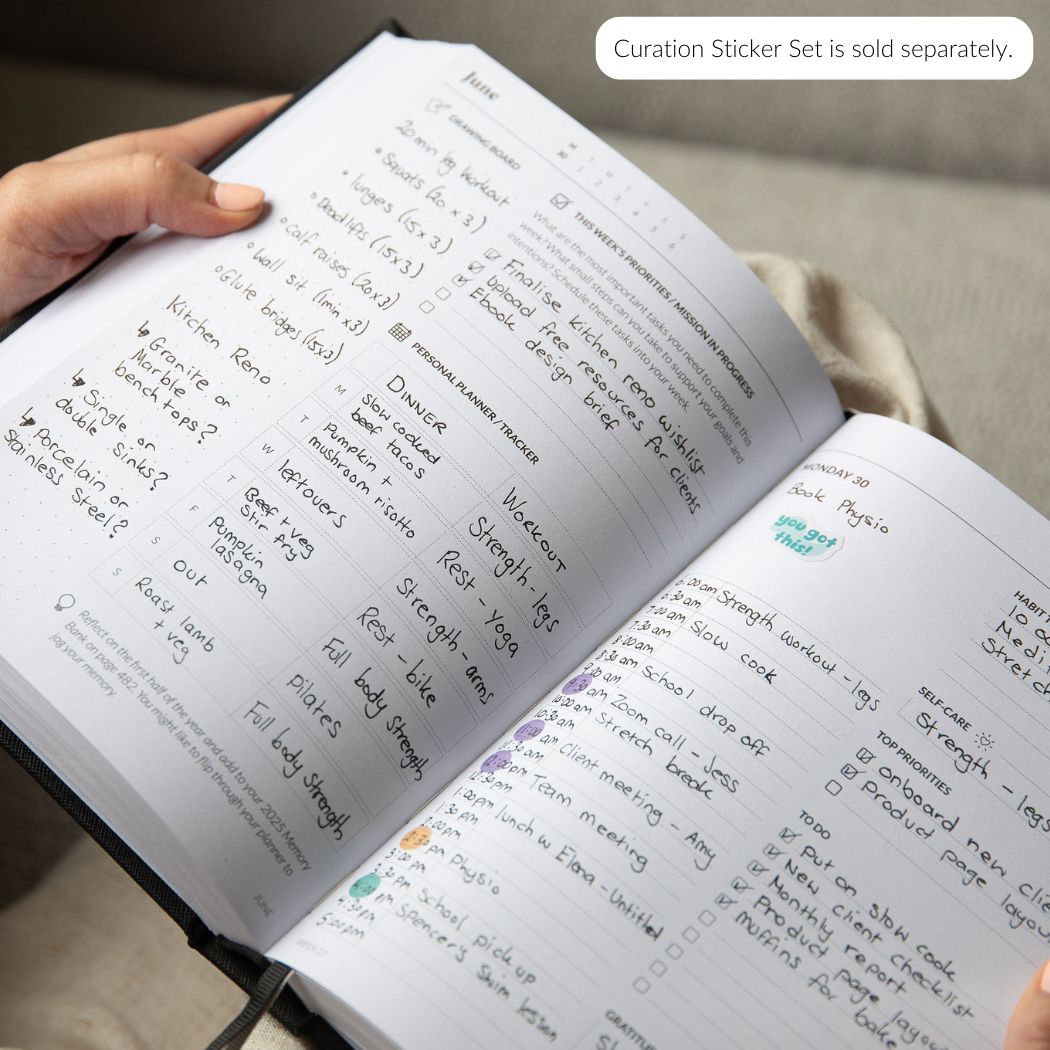 Curation Sticker Set is sold separately.
June
DRAWING BOARD
20 min leg workout
Squats (20 x 3)
lunges (15 x 3)
Deadlifts (15x3)
calf raises (20x3)
wall sit (1min x3)
Glute bridges (15x3)
Kitchen Reno
↳ Granite or
Marble
benchtops?
↳ Single or
double sinks?
↳ Porcelain or
Stainless Steel?
M T W T F S S
30 1 2 3 4 5 6
THIS WEEK'S PRIORITIES / MISSION IN PROGRESS
What are the most important tasks you need to complete this
week? What small steps can you take to support your goals and
intentions? Schedule these tasks into your week
Finalise kitchen reno wishlist
Upload free resources for clients
Ebook design brief
PERSONAL PLANNER / TRACKER
DINNER
WORKOUT
M
Slow cooked
beef tacos
Strength - legs
T
Pumpkin +
mushroom risotto
Rest - yoga
W
leftovers
Strength - arms
T
Beef + veg
Stir fry
Rest - bike
F
Pumpkin
lasagna
Full body Strength
S
out
pilates
S
Roast lamb
+ veg
Full body Strength
Reflect on the first half of the year and add to your 2025 Memory
Bank on page 482. You might like to flip through your planner to
jog your memory.
JUNE
MONDAY 30
Book Physio
you got
this!
6:00am Strength workout - legs
6:30 am
7:00 am Slow cook
7:30 am
8:00 am
8:30 am School drop off
9:00 am
9:30 am Zoom call - Jess
10:00 am Stretch break
10:30 am
11:00 am Client meeting - Amy
11:30 am
12:00 pm Team meeting
12:30 pm
1:00 pm lunch w Elena - Untitled
1:30 pm
2:00 pm
2:30 pm Physio
3:00 pm
3:30 pm School pick up
4:00 pm Spencer's Swim lesson
4:30 pm
5:00 pm
WEEK 27
HABIT
10
Stretch
SELF CARE
Strength - legs
TOP PRIORITIES
onboard new
Product page
TODO
Put on slow cook
New client checklist
Monthly report
Product page
Muffins for bake